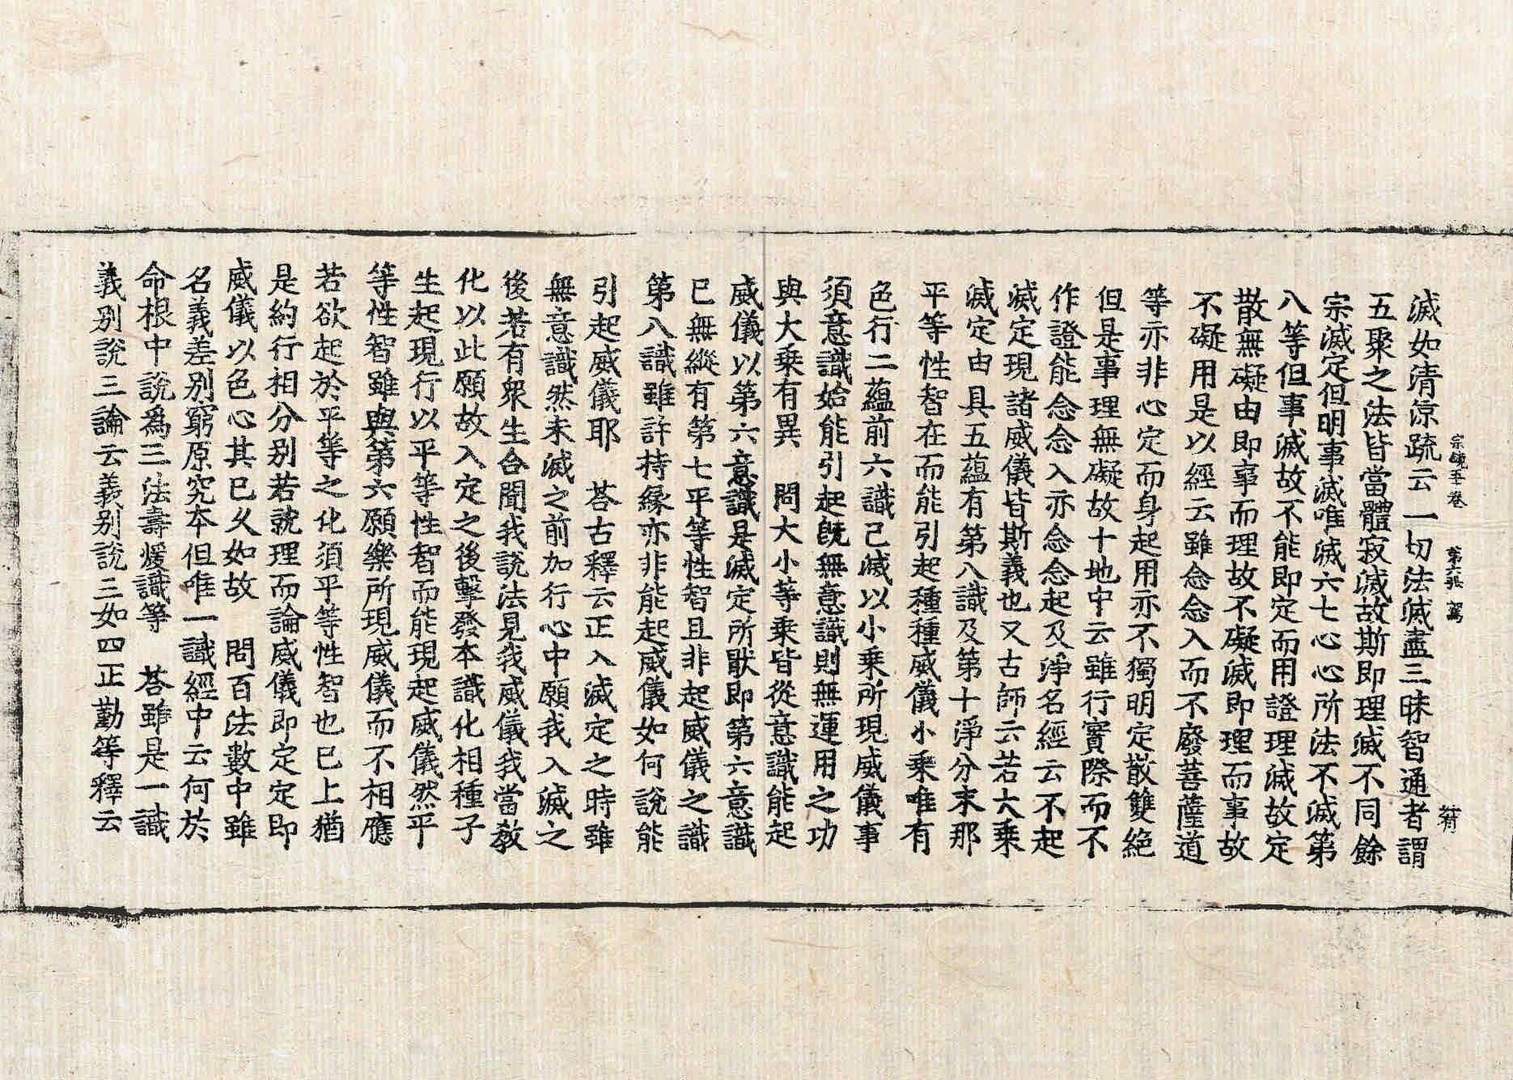 宗鏡五十五卷 第六張 駕
滅如清涼疏云一切法滅盡三昧智通者謂
五聚之法皆當體寂滅故斯即理滅不同餘
宗滅定但明事滅唯滅六七心心所法不滅第
八等但事滅故不能即定而用證理滅故定
散無礙由即事而理故不礙滅即理而事故
不礙用是以經云雖念念入而不廢菩薩道
等亦非心定而身起用亦不獨明定散雙絕
但是事理無礙故十地中云雖行實際而不
作證能念念入亦念念起及淨名經云不起
滅定現諸威儀皆斯義也又古師云若大乘
滅定由具五蘊有第八識及第七淨分末那
平等性智在而能引起種種威儀小乘唯有
色行二蘊前六識已滅以小乘所現威儀事
須意識始能引起既無意識則無運用之功
與大乘有異　問大小等乘皆從意識能起
威儀以第六意識是滅定所猒即第六意識
已無縱有第七平等性智且非起威儀之識
第八識雖許持緣亦非能起威儀如何說能
引起威儀耶　荅古釋云正入滅定之時雖
無意識然未滅之前加行心中願我入滅之
後若有衆生合聞我說法見我威儀我當教
化以此願故入定之後擊發本識化相種子
生起現行以平等性智而能現起威儀然平
等性智雖與第六願樂所現威儀而不相應
若欲起於平等之化須平等性智也已上猶
是約行相分別若就理而論威儀即定定即
威儀以色心其已久如故　問百法數中雖
名義差別窮原究本但唯一識經中云何於
命根中說爲三法壽煖識等　荅雖是一識
義別說三論云義別說三如四正勤等釋云